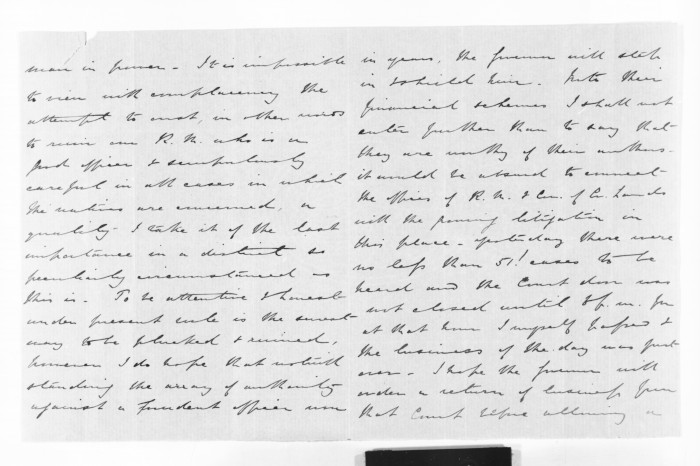 man in power - It is impossible
to view with complacency the
attempt to oust, in other words
to ruin our R. M. who is a
good officer & scrupulously
careful in all cases in which
the natives are concerned, a
quality I take it of the last
importance in a district so
peculiarly circumstanced as
this is - To be attentive & honest
under present rule is the surest
way to be plucked & ruined,
however I do hope that notwith
standing the array of authority
against a prudent officer now
in years, the Governor will step
in & shield him - Into their
financial schemes I shall not
enter further than to say that
they are worthy of their authors -
it would be absurd to connect
the offices of R. M. & Com. of Cn. Lands
with the growing litigation in
this place - yesterday there were
no less than 51! cases to be
heard and the Court door was
not closed until 8 p. m. for
at that hour I myself passed &
the business of the day was just
over - I hope the Governor will
order a return of business from
that Court before allowing a